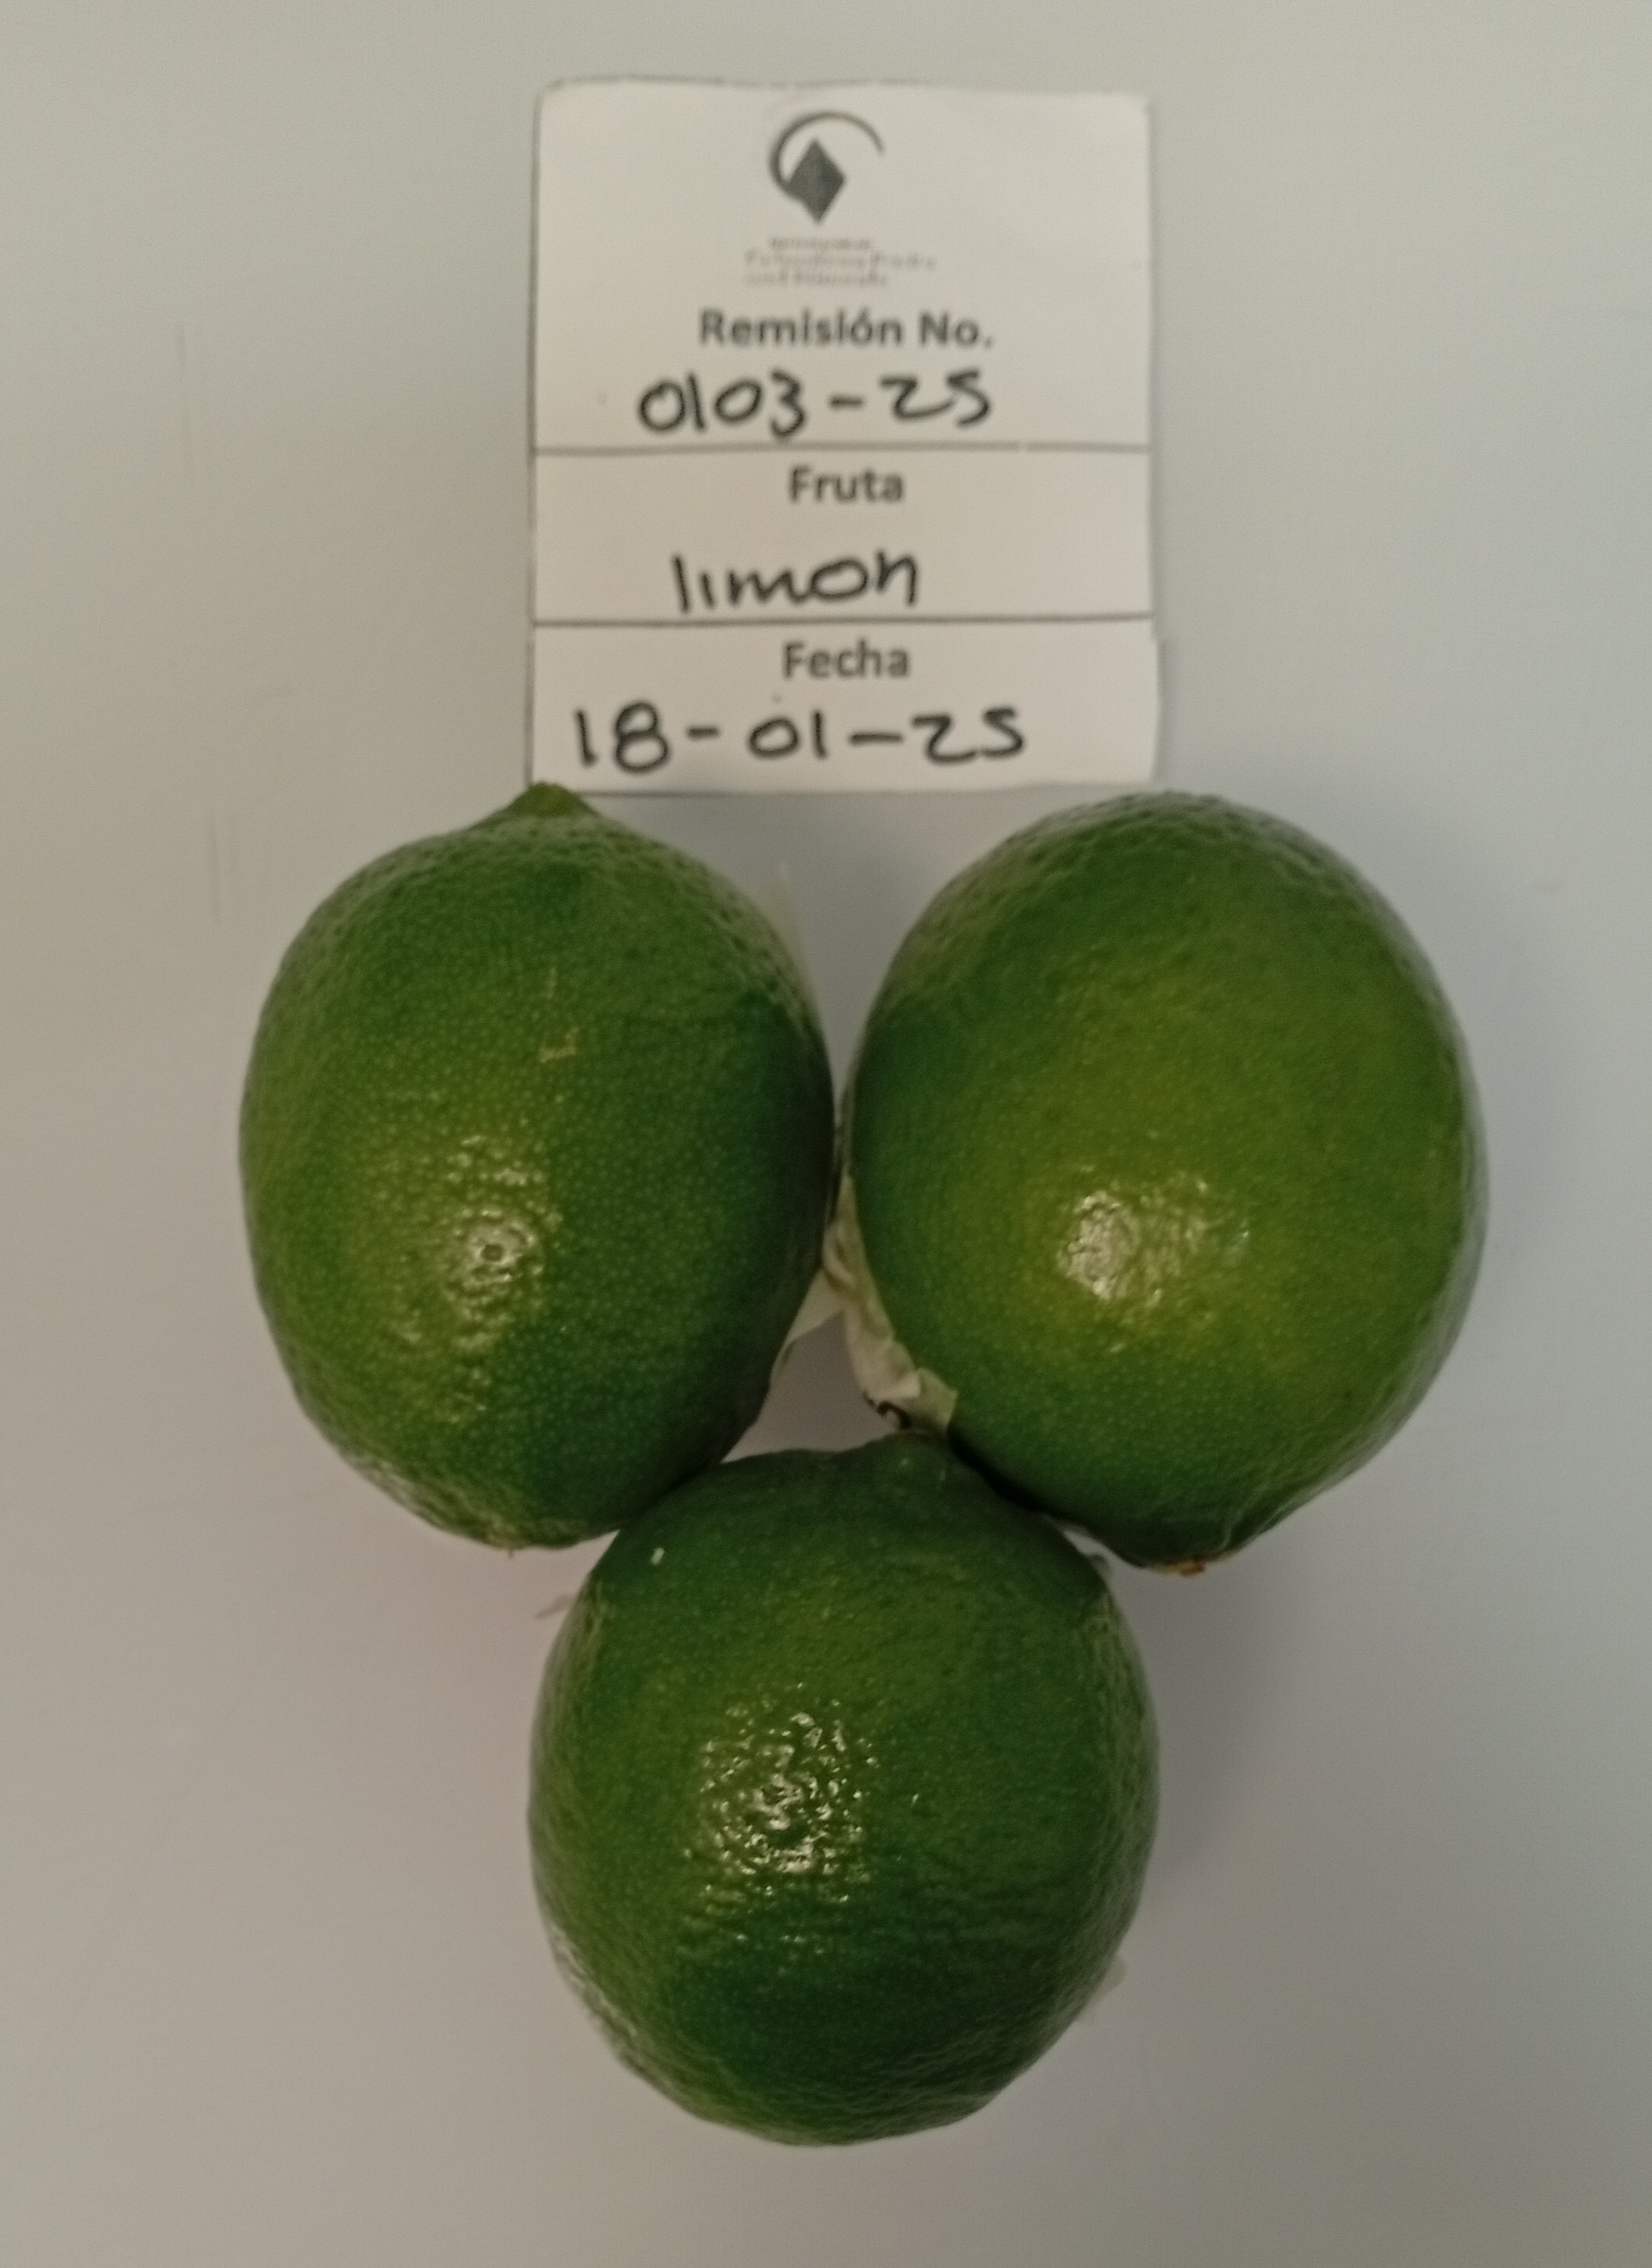 Remisión No.
0103-25
Fruta
limon
Fecha
18-01-25